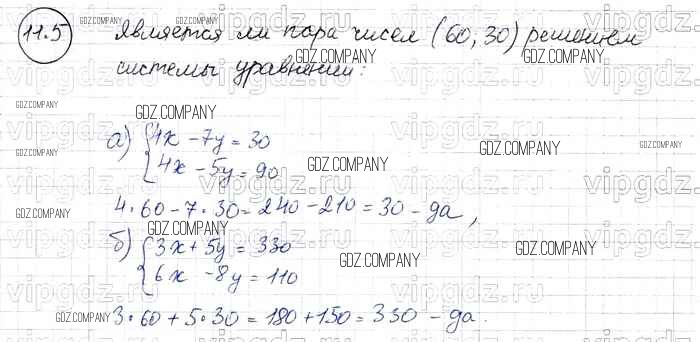 11.5 Является ли пара чисел (60, 30) решением
системы уравнений:
а) { 4x - 7y = 30
4x - 5y = 90
4 · 60 - 7 · 30 = 240 - 210 = 30 - да,
б) { 3x + 5y = 330
6x - 8y = 110
3 · 60 + 5 · 30 = 180 + 150 = 330 - да.
GDZ.COMPANY
GDZ.COMPANY
GDZ.COMPANY
GDZ.COMPANY
GDZ.COMPANY
GDZ.COMPANY
GDZ.COMPANY
GDZ.COMPANY
GDZ.COMPANY
GDZ.COMPANY
GDZ.COMPANY
GDZ.COMPANY
vipgdz.ru
vipgdz.ru
vipgdz.ru
vipgdz.ru